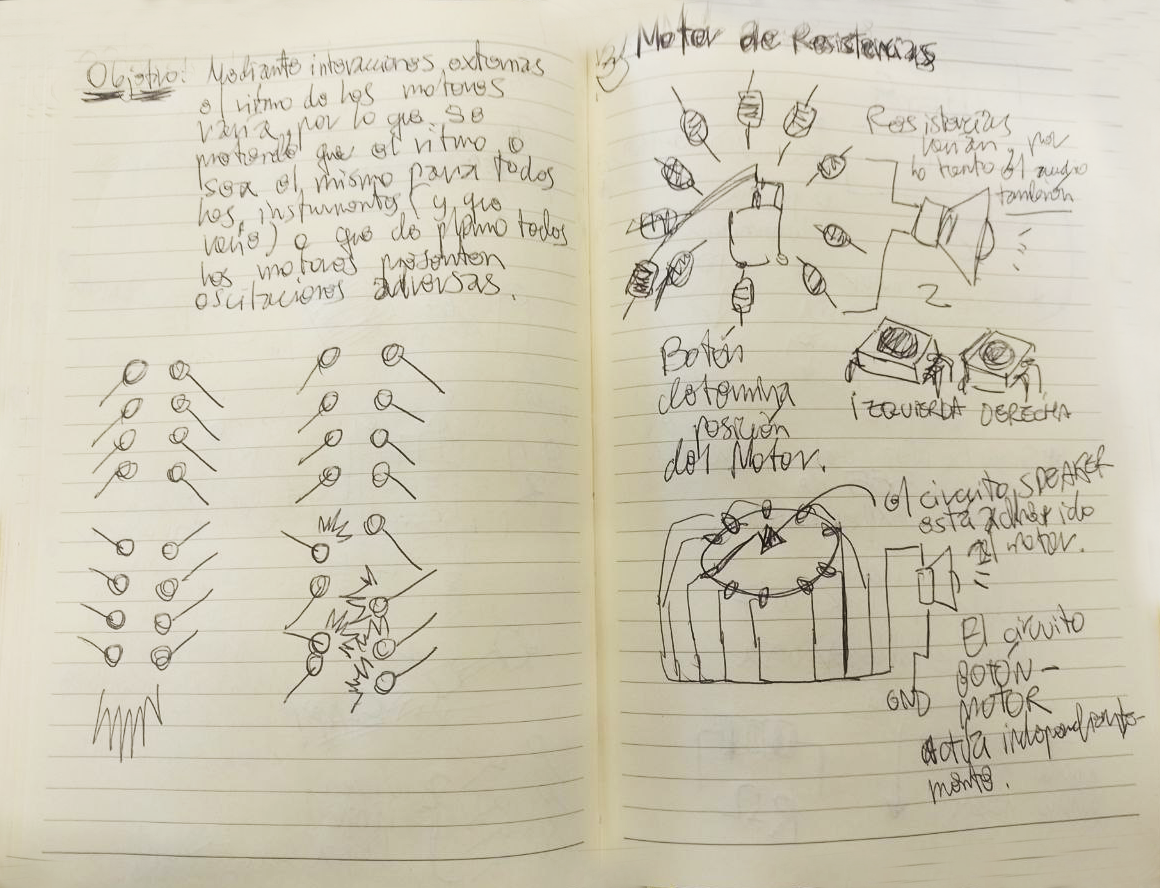 Objetivo: Mediante interacciones externas
el ritmo de los motores
varía, por lo que se
pretende que el ritmo o
sea el mismo para todos
los instrumentos (y que
varíe) o que de plano todos
los motores presenten
oscilaciones adversas.
Motor de Resistencias
Resistencias
varían, por
lo tanto el audio
también
Botón
determina
posición
del Motor.
IZQUIERDA DERECHA
el circuito SPEAKER
está adherido
al motor.
GND
El circuito
BOTÓN-
MOTOR
actúa independiente-
mente.